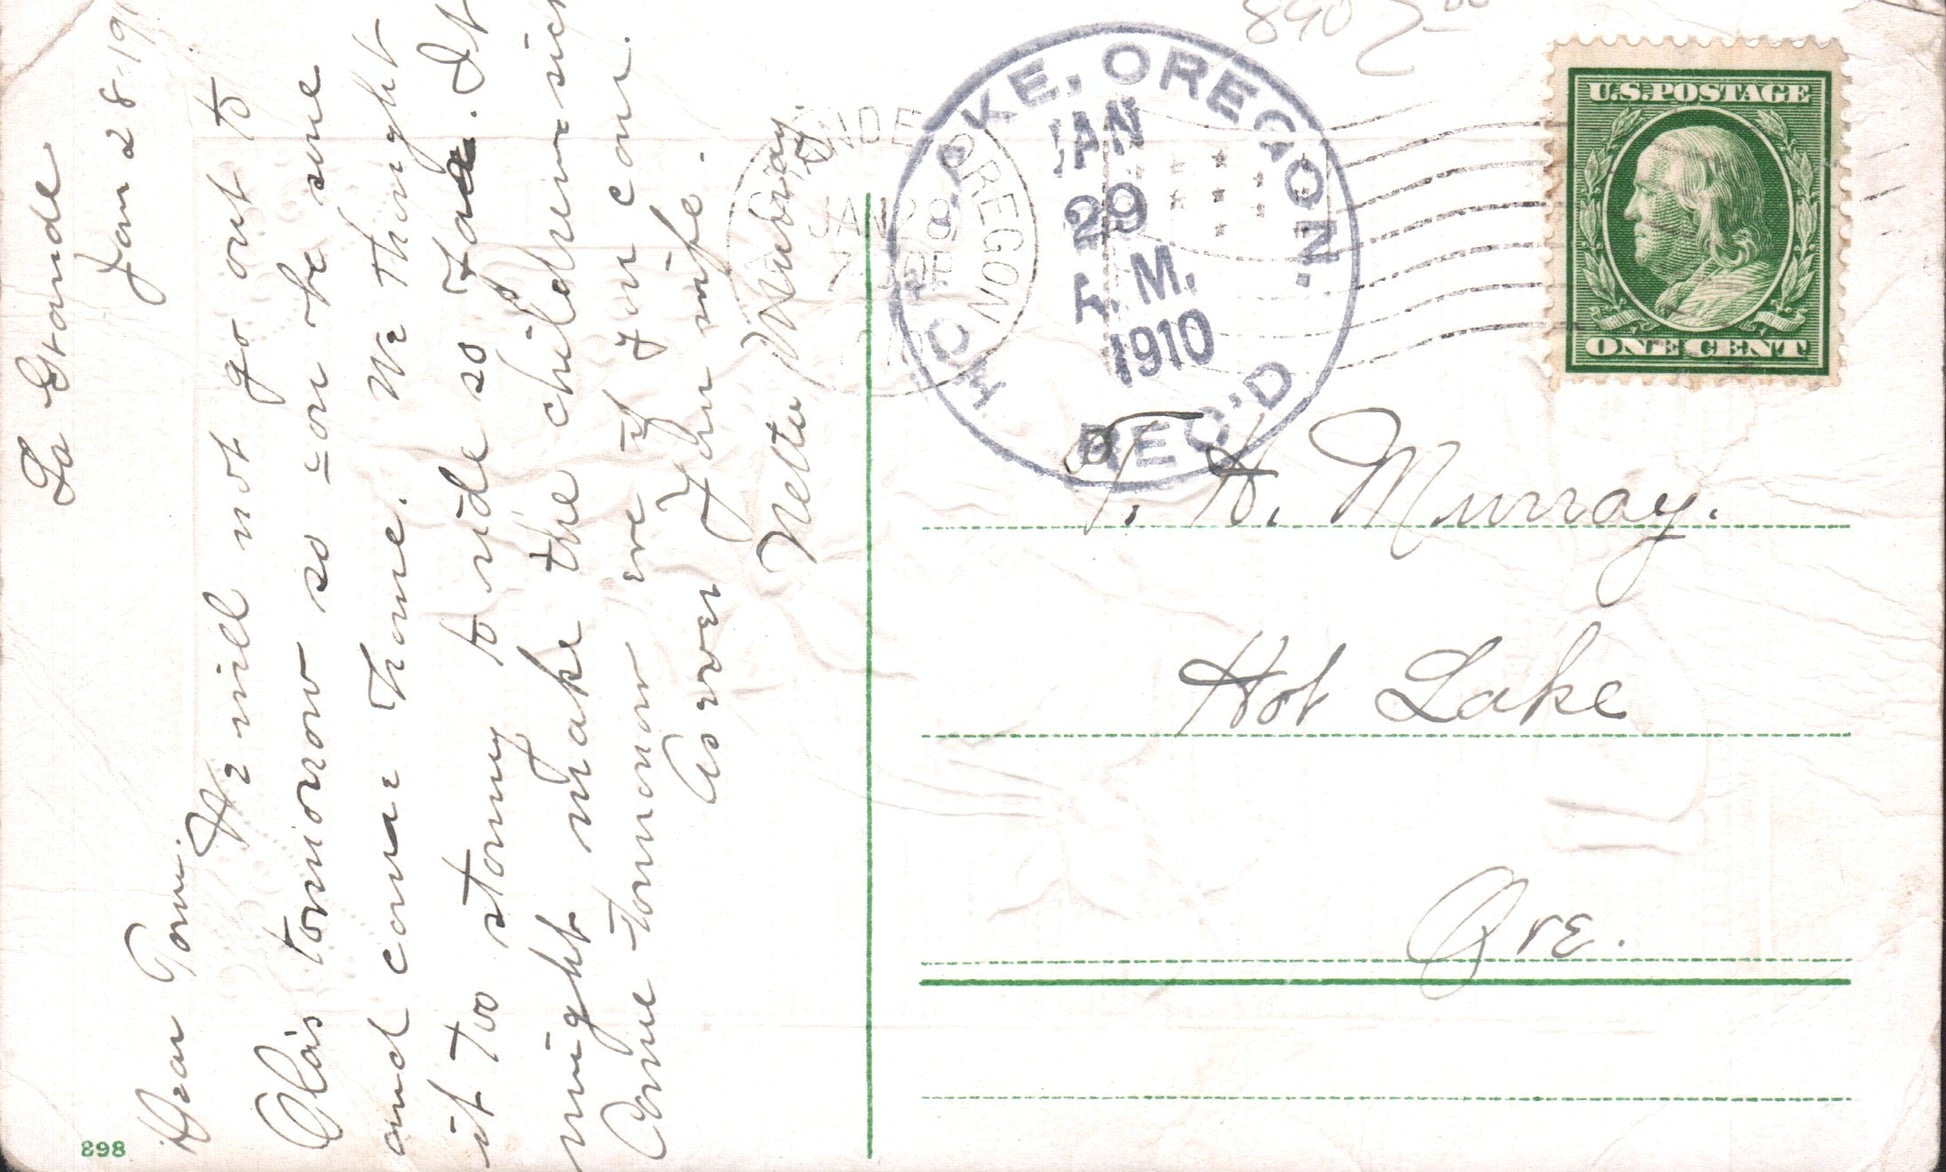 La Grande
Jan 28 191
Dear Tom.
We will not go out to
Ola's tomorrow so you be sure
and come home. We thought
it too stormy to ride so far. It
might make the children sick
Come tomorrow eve if you can.
As ever Your wife.
Netta Murray.
NDE, OREGON
JAN 28
7
HOT LAKE, OREGON.
JAN
29
A.M.
1910
REC'D
890
U.S. POSTAGE
ONE CENT
T. H. Murray.
Hot Lake
Ore.
898